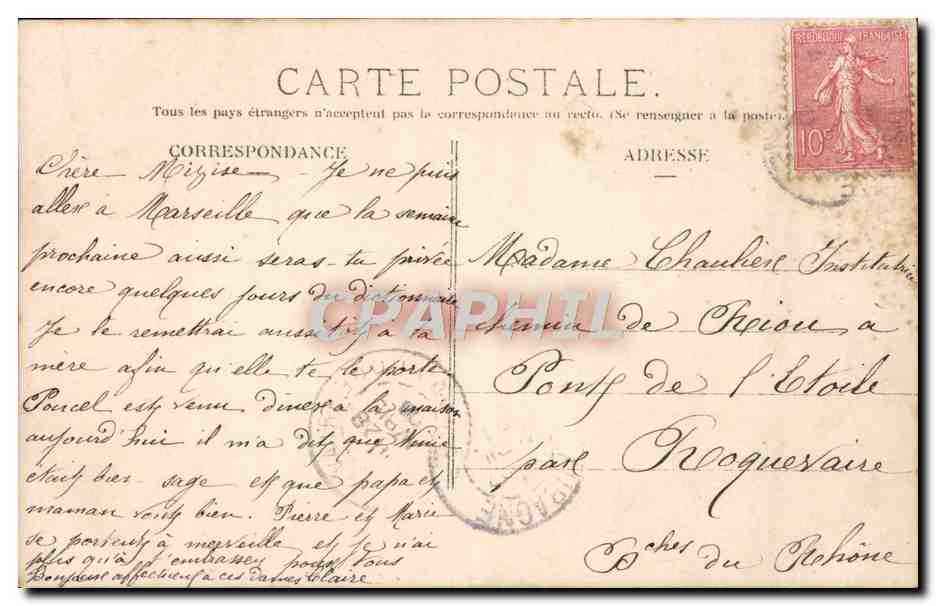 RÉPUBLIQUE FRANÇAISE
10c
CARTE POSTALE
Tous les pays étrangers n'acceptent pas la correspondance au recto. (Se renseigner a la poste).
CORRESPONDANCE
Chère Mizise Je ne puis
aller à Marseille que la semaine
prochaine aussi seras-tu privée
encore quelques jours du dictionnaire
Je le remettrai aussitôt à ta
mère afin qu'elle te le porte.
Poucel est venu diner à la maison
aujourd'hui il m'a dit que Ninie
était bien sage et que papa et
maman vont bien. Pierre et Marie
se portent à merveille et je n'ai
plus qu'à t'embrasser pour tous
Bonjour affectueux à ces dames Claire
ADRESSE
Madame Chaulier Institutrice
chemin de Riou à
Pont de l'Etoile
par Roquevaire
Bches du Rhône
CPAPHIL